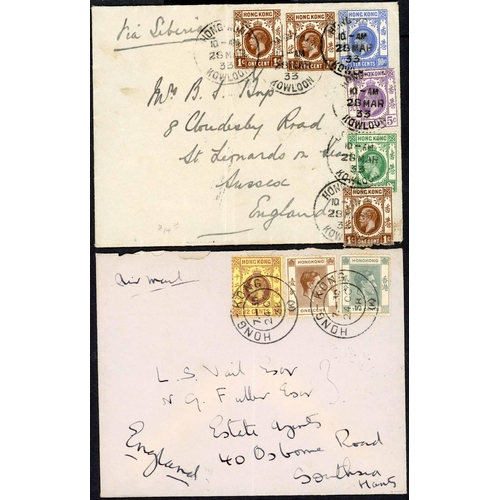 Via Siberia
HONG KONG
ONE CENT
1c
HONG KONG
ONE CENT
HONG KONG
TEN CENTS
10c
10-AM
28 MAR
33
KOWLOON
HONG KONG
5c
10-AM
28 MAR
33
KOWLOON
HONG KONG
HONG KONG
ONE CENT
1c
Mrs B. J.
8 Cloudesley Road
St Leonards on Sea
Sussex
England
Air Mail
HONG KONG
CENTS
HONGKONG
HONGKONG
HONG-KONG
HONG-KONG
L. S. Vail Esqr
N G. Fuller Esqr
Estate Agents
40 Osborne Road
Southsea
Hants
England